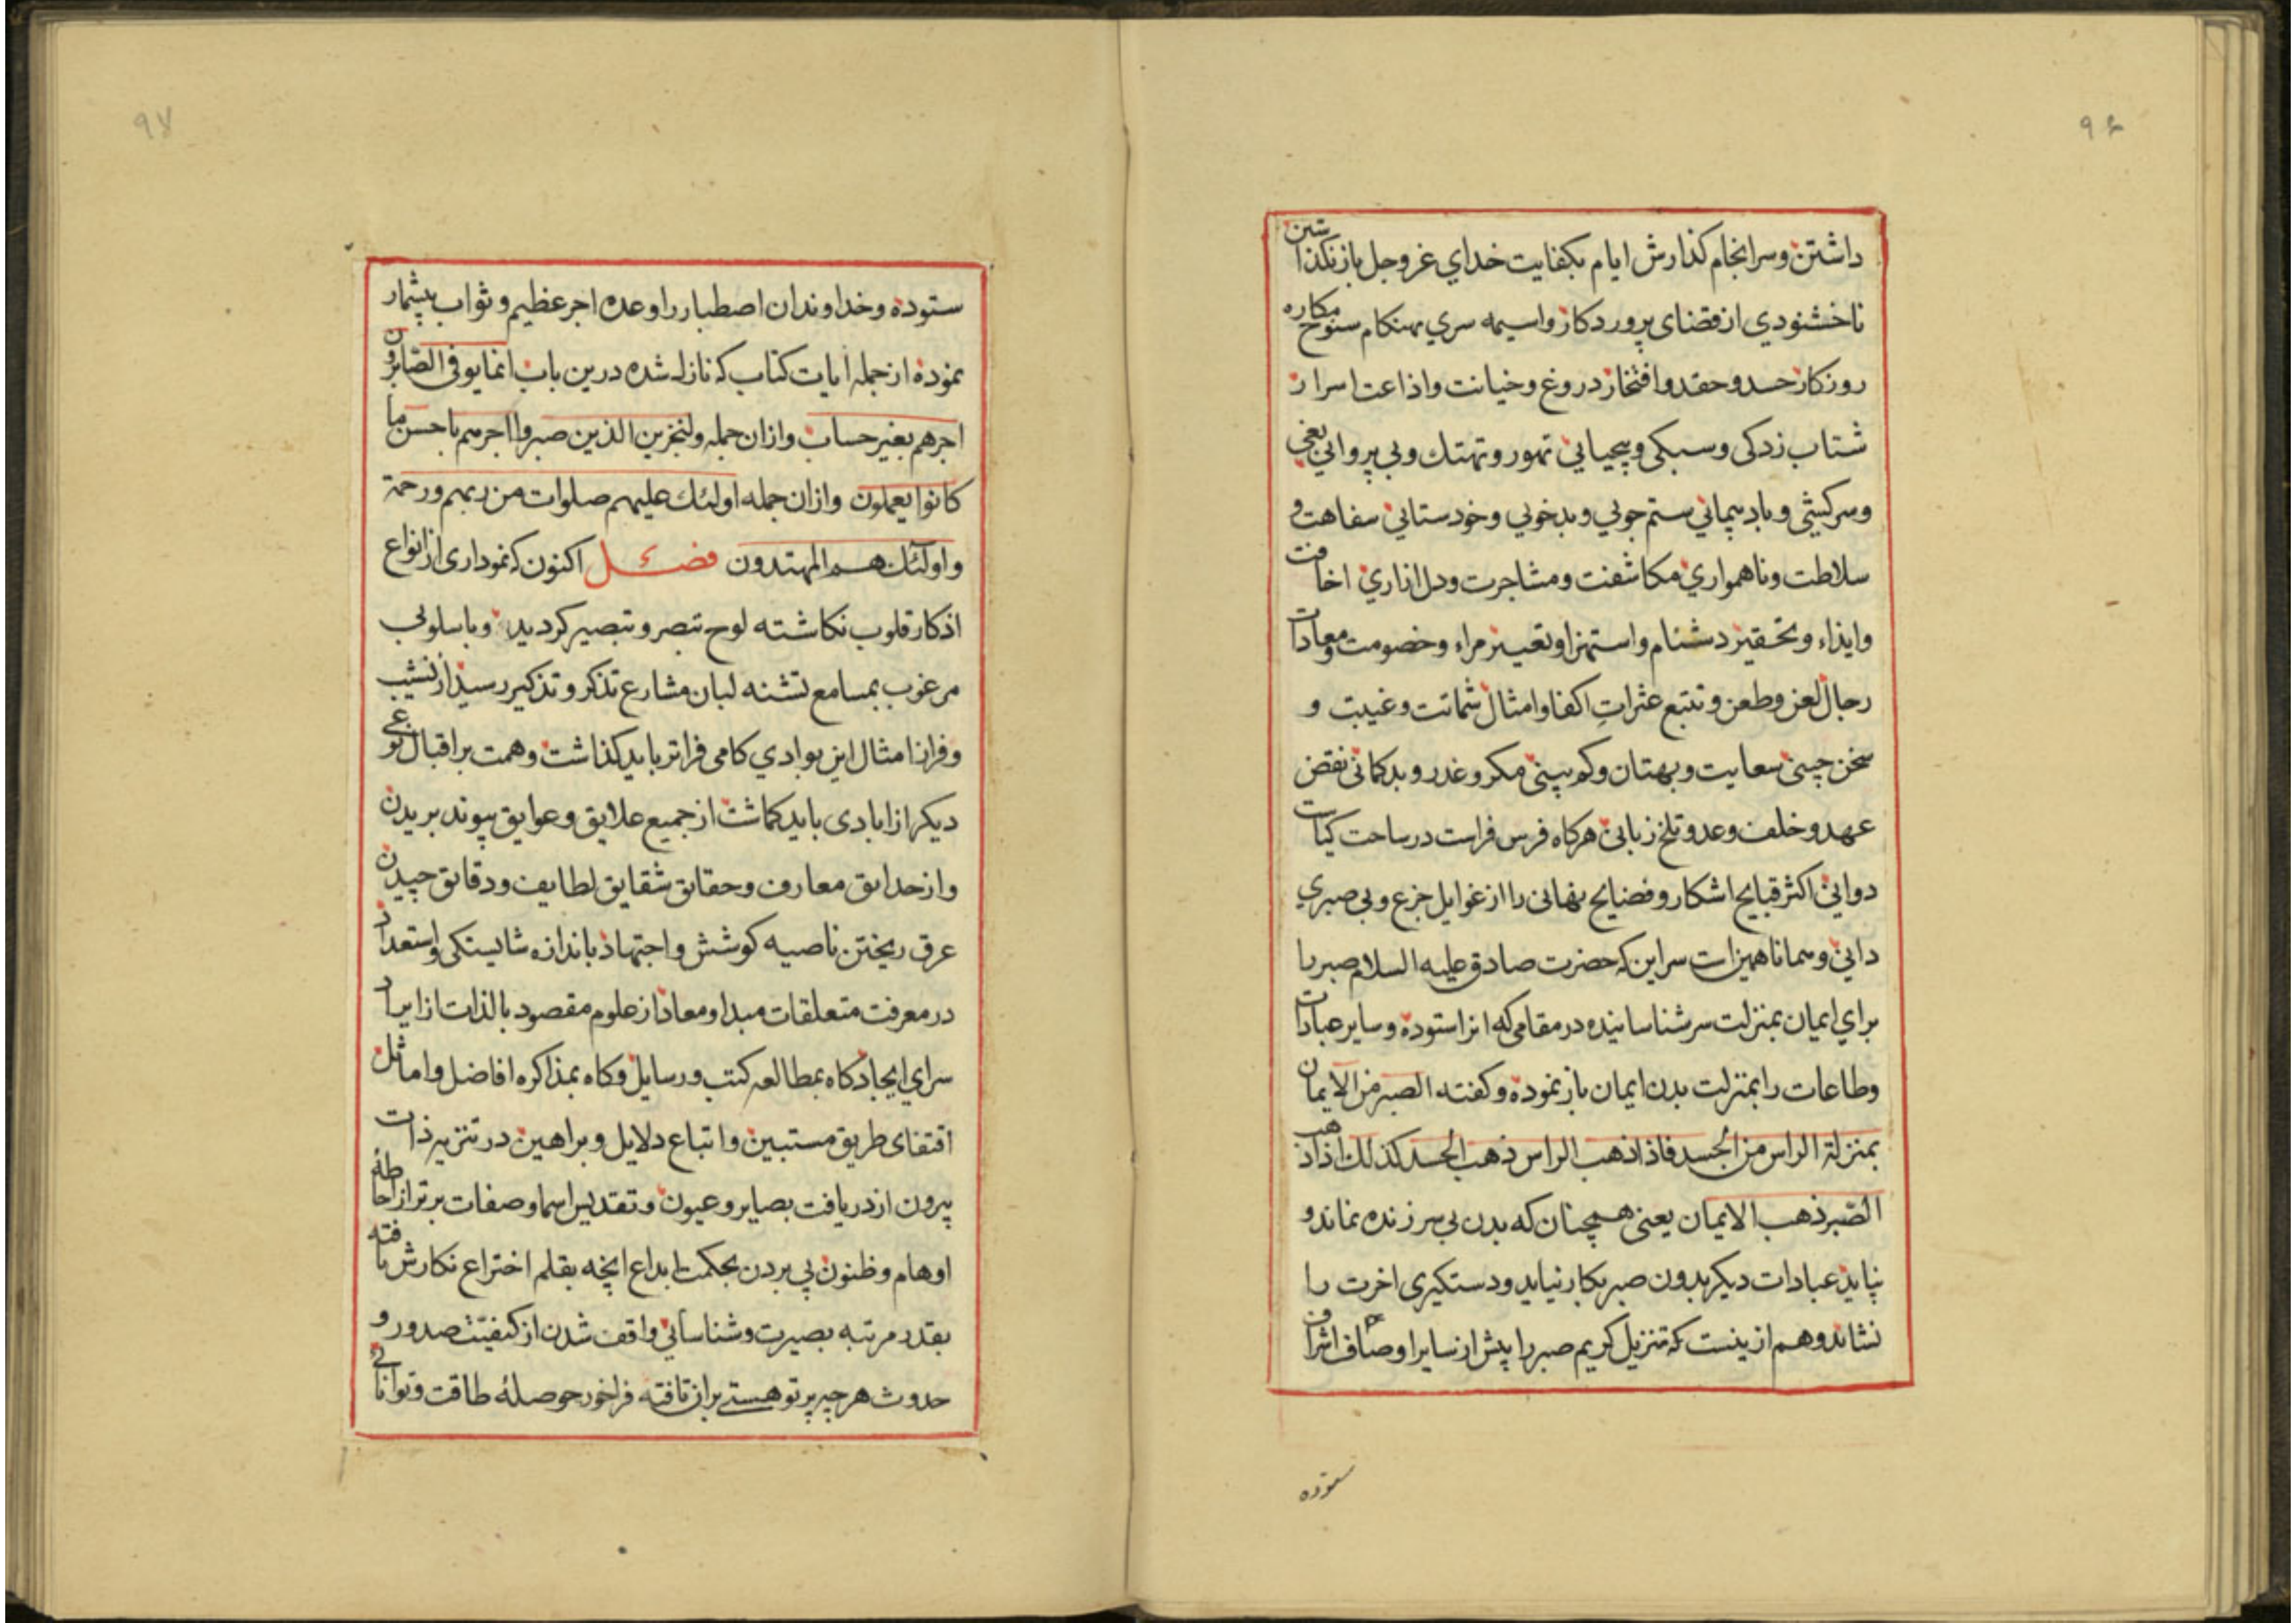 ۹۶
داشتن وسرانجام کذارش ایام بکفایت خدای عزوجل بازنکذاشتن
ناخشنودی از قضای پروردکار واسیمه سری بهنکام سنوح مکاره
روزکار حسد وحقد وافتخار دروغ وخیانت واذاعت اسرار
شتاب زدکی وسبکی وبیحیایی تهور وتهتك وبی پروایی بغی
وسرکشی وبادپیمایی ستم جویی وبدخویی وخودستایی سفاهت و
سلاطت وناهمواری مکاشفت ومشاجرت ودل ازاری اخافت
وایذاء وتحقیر دشنام واستهزا وتعییر مراء وخصومت ومعادات
رجال لعن وطعن وتتبع عثرات اکفا وامثال شماتت وغیبت و
سخن چینی سعایت وبهتان وکم بینی مکر وغدر وبدکمانی نقض
عهد وخلف وعد وتلخ زبانی هرکاه فرس فراست در ساحت کیاست
دوانی اکثر قبایح اشکار وفضایح نهانی را از غوایل جزع وبی صبری
دانی وهمانا همین است سر این که حضرت صادق علیه السلام صبر را
برای ایمان بمنزلت سر شناسانیده در مقامی که انرا ستوده وسایر عبادات
وطاعات را بمنزلت بدن ایمان باز نموده وکفته الصبر من الایمان
بمنزلة الراس من الجسد فاذا ذهب الراس ذهب الجسد کذلك اذا ذهب
الصبر ذهب الایمان یعنی همچنان که بدن بی سر زنده نماند و
نپاید عبادات دیکر بدون صبر بکار نیاید ودستکیری اخرت را
نشاید وهم ازینست که تنزیل کریم صبر را پیش از سایر اوصاف اشراف
ستوده
۹۷
ستوده وخداوندان اصطبار را وعده اجر عظیم وثواب بیشمار
نموده از جمله ایات کتاب که نازل شده درین باب انما یوفی الصابرون
اجرهم بغیر حساب وازان جمله ولنجزین الذین صبروا اجرهم باحسن ما
کانوا یعملون وازان جمله اولئك علیهم صلوات من ربهم ورحمة
واولئك هم المهتدون فصل اکنون که نموداری از انواع
اذکار قلوب نکاشته لوح تبصر وتبصیر کردید وباسلوبی
مرغوب بمسامع تشنه لبان مشارع تذکر وتذکیر رسید از نشیب
وفراز امثال این بوادی کامی فراتر باید کذاشت وهمت بر اقبال نوعی
دیکر از ایادی باید کماشت از جمیع علایق وعوایق پیوند بریدن
واز حدایق معارف وحقایق شقایق لطایف ودقایق چیدن
عرق ریختن ناصیه کوشش واجتهاد باندازه شایستکی واستعداد
در معرفت متعلقات مبدا ومعاد از علوم مقصود بالذات از ایراد
سرای ایجاد کاه بمطالعه کتب ورسایل وکاه بمذاکره افاضل واماثل
اقتفای طریق مستبین واتباع دلایل وبراهین در تنزیه ذات
بیرون از دریافت بصایر وعیون وتقدیس اسما وصفات برتر از احاطهٔ
اوهام وظنون پی بردن بحکمت ابداع انچه بقلم اختراع نکارش یافته
بقدر مرتبه بصیرت وشناسائی واقف شدن از کیفیت صدور و
حدوث هرچه پرتو هستی بران تافته فراخور حوصلهٔ طاقت وتوانائی